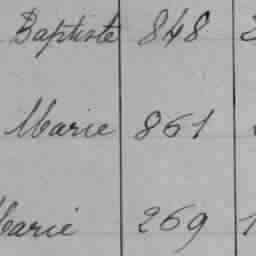 Baptiste 848
Marie 861
Marie 269 1